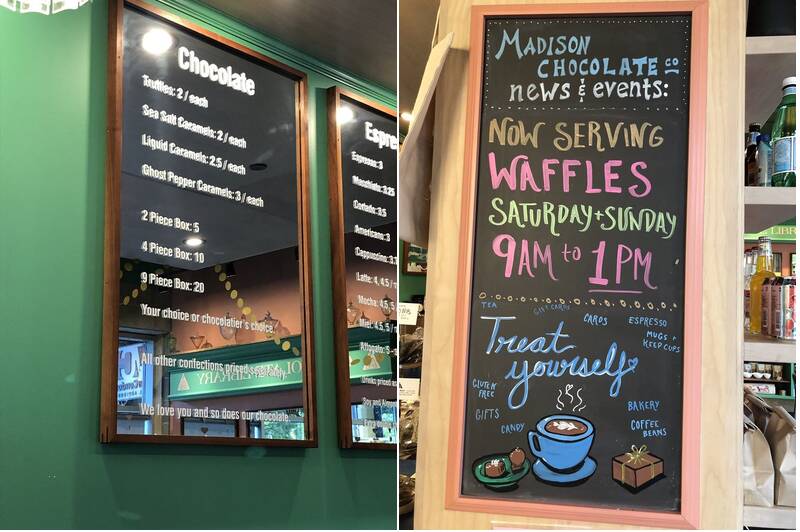 Chocolate
Truffles: 2 / each
Sea Salt Caramels: 2 / each
Liquid Caramels: 2.5 / each
Ghost Pepper Caramels: 3 / each
2 Piece Box: 5
4 Piece Box: 10
9 Piece Box: 20
Your choice or chocolatier's choice.
All other confections priced separately.
We love you and so does our chocolate.
Espre
Espresso: 3
Macchiato: 3.25
Cortado: 3.5
Americano: 3
Cappuccino: 3.7
Latte: 4, 4.5 /
Mocha: 4.5, 5
Miel: 4.5, 5 /
Affogato: 5
Drinks priced as
Soy and Almond
MADISON
CHOCOLATE CO
news & events:
NOW SERVING
WAFFLES
SATURDAY + SUNDAY
9AM to 1PM
TEA
GIFT CARDS
CARDS
ESPRESSO
MUGS +
KEEP CUPS
Treat
yourself
GLUTEN
FREE
GIFTS
CANDY
BAKERY
COFFEE
BEANS